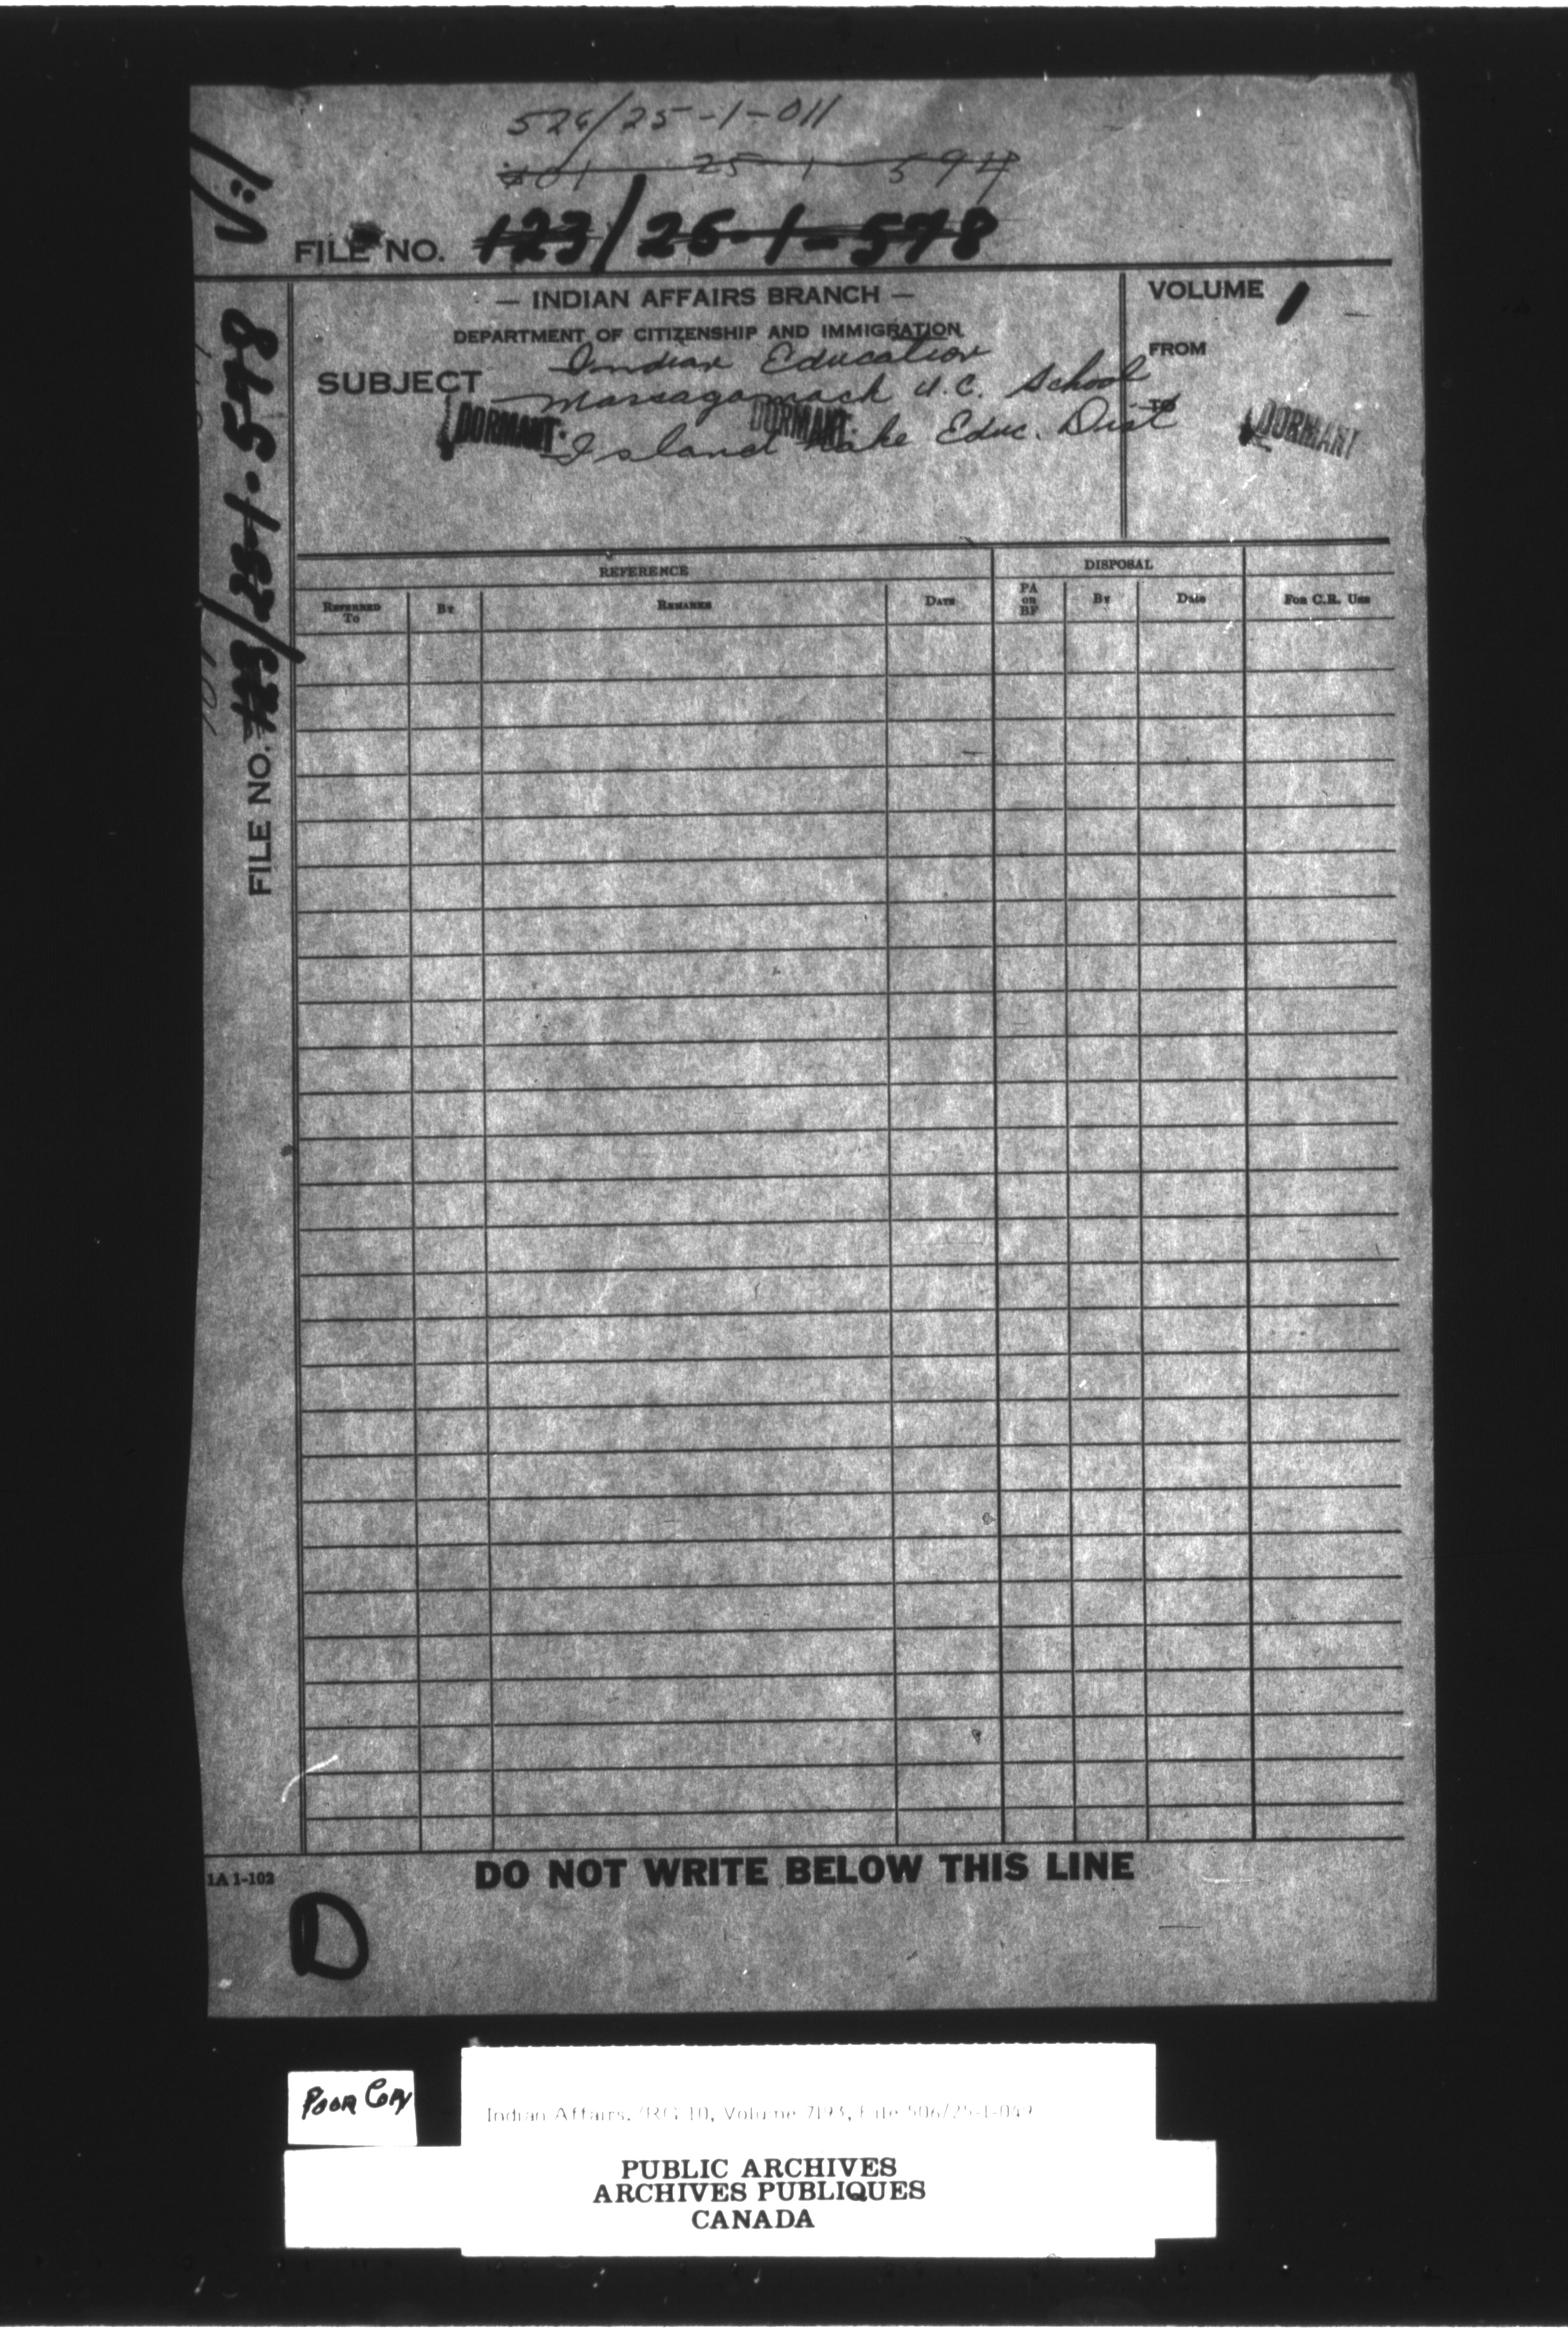 526/25-1-011
101 25 1 594
FILE NO. 123/25-1-578
V:1
— INDIAN AFFAIRS BRANCH —
DEPARTMENT OF CITIZENSHIP AND IMMIGRATION
VOLUME 1
FROM
TO
SUBJECT Indian Education
Massagamack U.C. School
Island Lake Educ. Dist
DORMANT
DORMANT
DORMANT
FILE NO. 123/25-1-578
REFERENCE
DISPOSAL
REFERRED TO
BY
REMARKS
DATE
PA OR BF
BY
Date
FOR C.R. USE
IA 1-102
DO NOT WRITE BELOW THIS LINE
D
POOR COPY
Indian Affairs. (RG 10, Volume 7193, File 506/25-1-049
PUBLIC ARCHIVES
ARCHIVES PUBLIQUES
CANADA